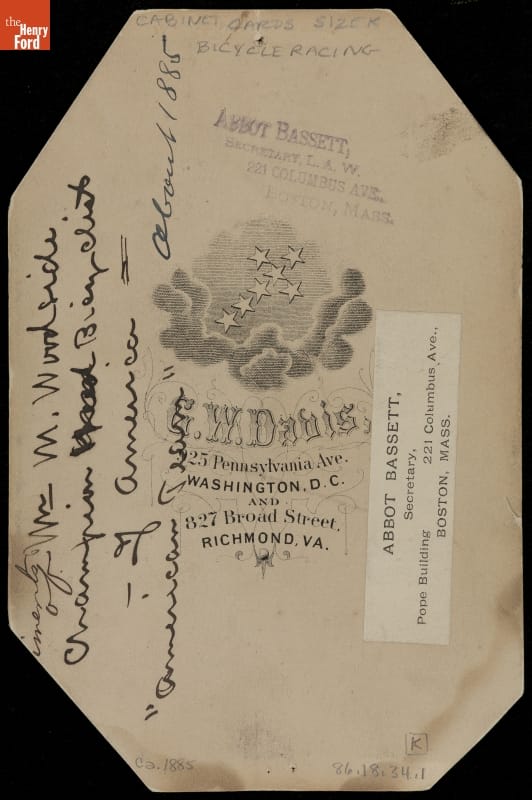 the
Henry
Ford
CABINET CARDS SIZE K
BICYCLE RACING
ABBOT BASSETT,
SECRETARY, L. A. W.
221 COLUMBUS AVE.
BOSTON, MASS.
G.W. Davis,
25 Pennsylvania Ave.
WASHINGTON, D.C.
AND
827 Broad Street.
RICHMOND, VA.
of Wm M. Woodside
Champion Bicyclist
- of America =
"American Team"
about 1885
ABBOT BASSETT,
Secretary,
Pope Building 221 Columbus Ave.,
BOSTON, MASS.
K
Ca. 1885
86.18.34.1